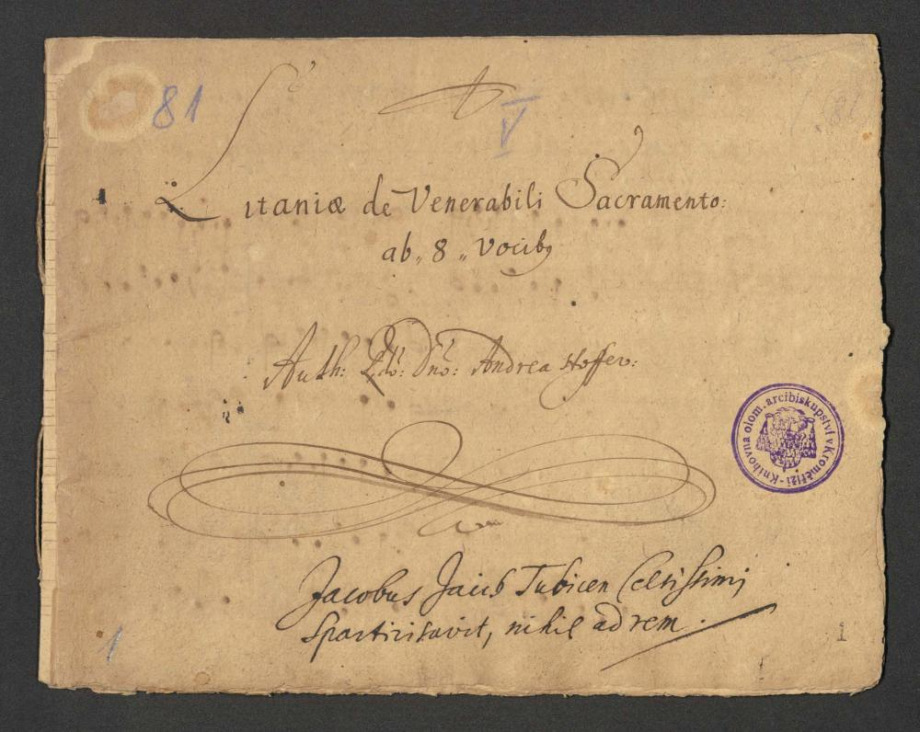 81
V
Litaniæ de Venerabili Sacramento:
ab „ 8 „ Vocibꝰ
Auth: Rdō: Dnō: Andrea Hoffer:
Knihovna olom. arcibiskupství v Kroměříži
Jacobus Jacob Tubicen Celsissimi
Spartirisavit, nihil ad rem.
1
1